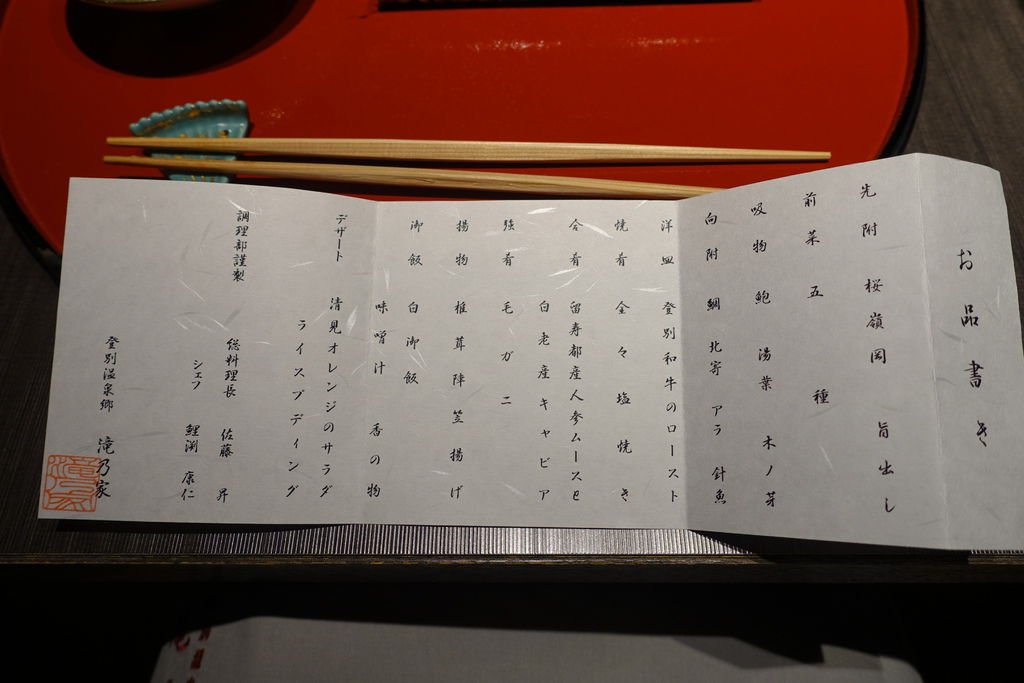 お品書き
先附 桜嶺岡 旨出し
前菜 五種
吸物 鮑 湯葉 木ノ芽
向附 鯛 北寄 アラ 針魚
洋皿 登別和牛のロースト
焼肴 金々塩焼き
合肴 留寿都産人参ムースと
白老産キャビア
強肴 毛ガニ
揚物 椎茸陣笠揚げ
御飯 白御飯
味噌汁 香の物
デザート 清見オレンジのサラダ
ライスプディング
調理部謹製
総料理長 佐藤 昇
シェフ 鯉渕 康仁
登別温泉郷 滝乃家